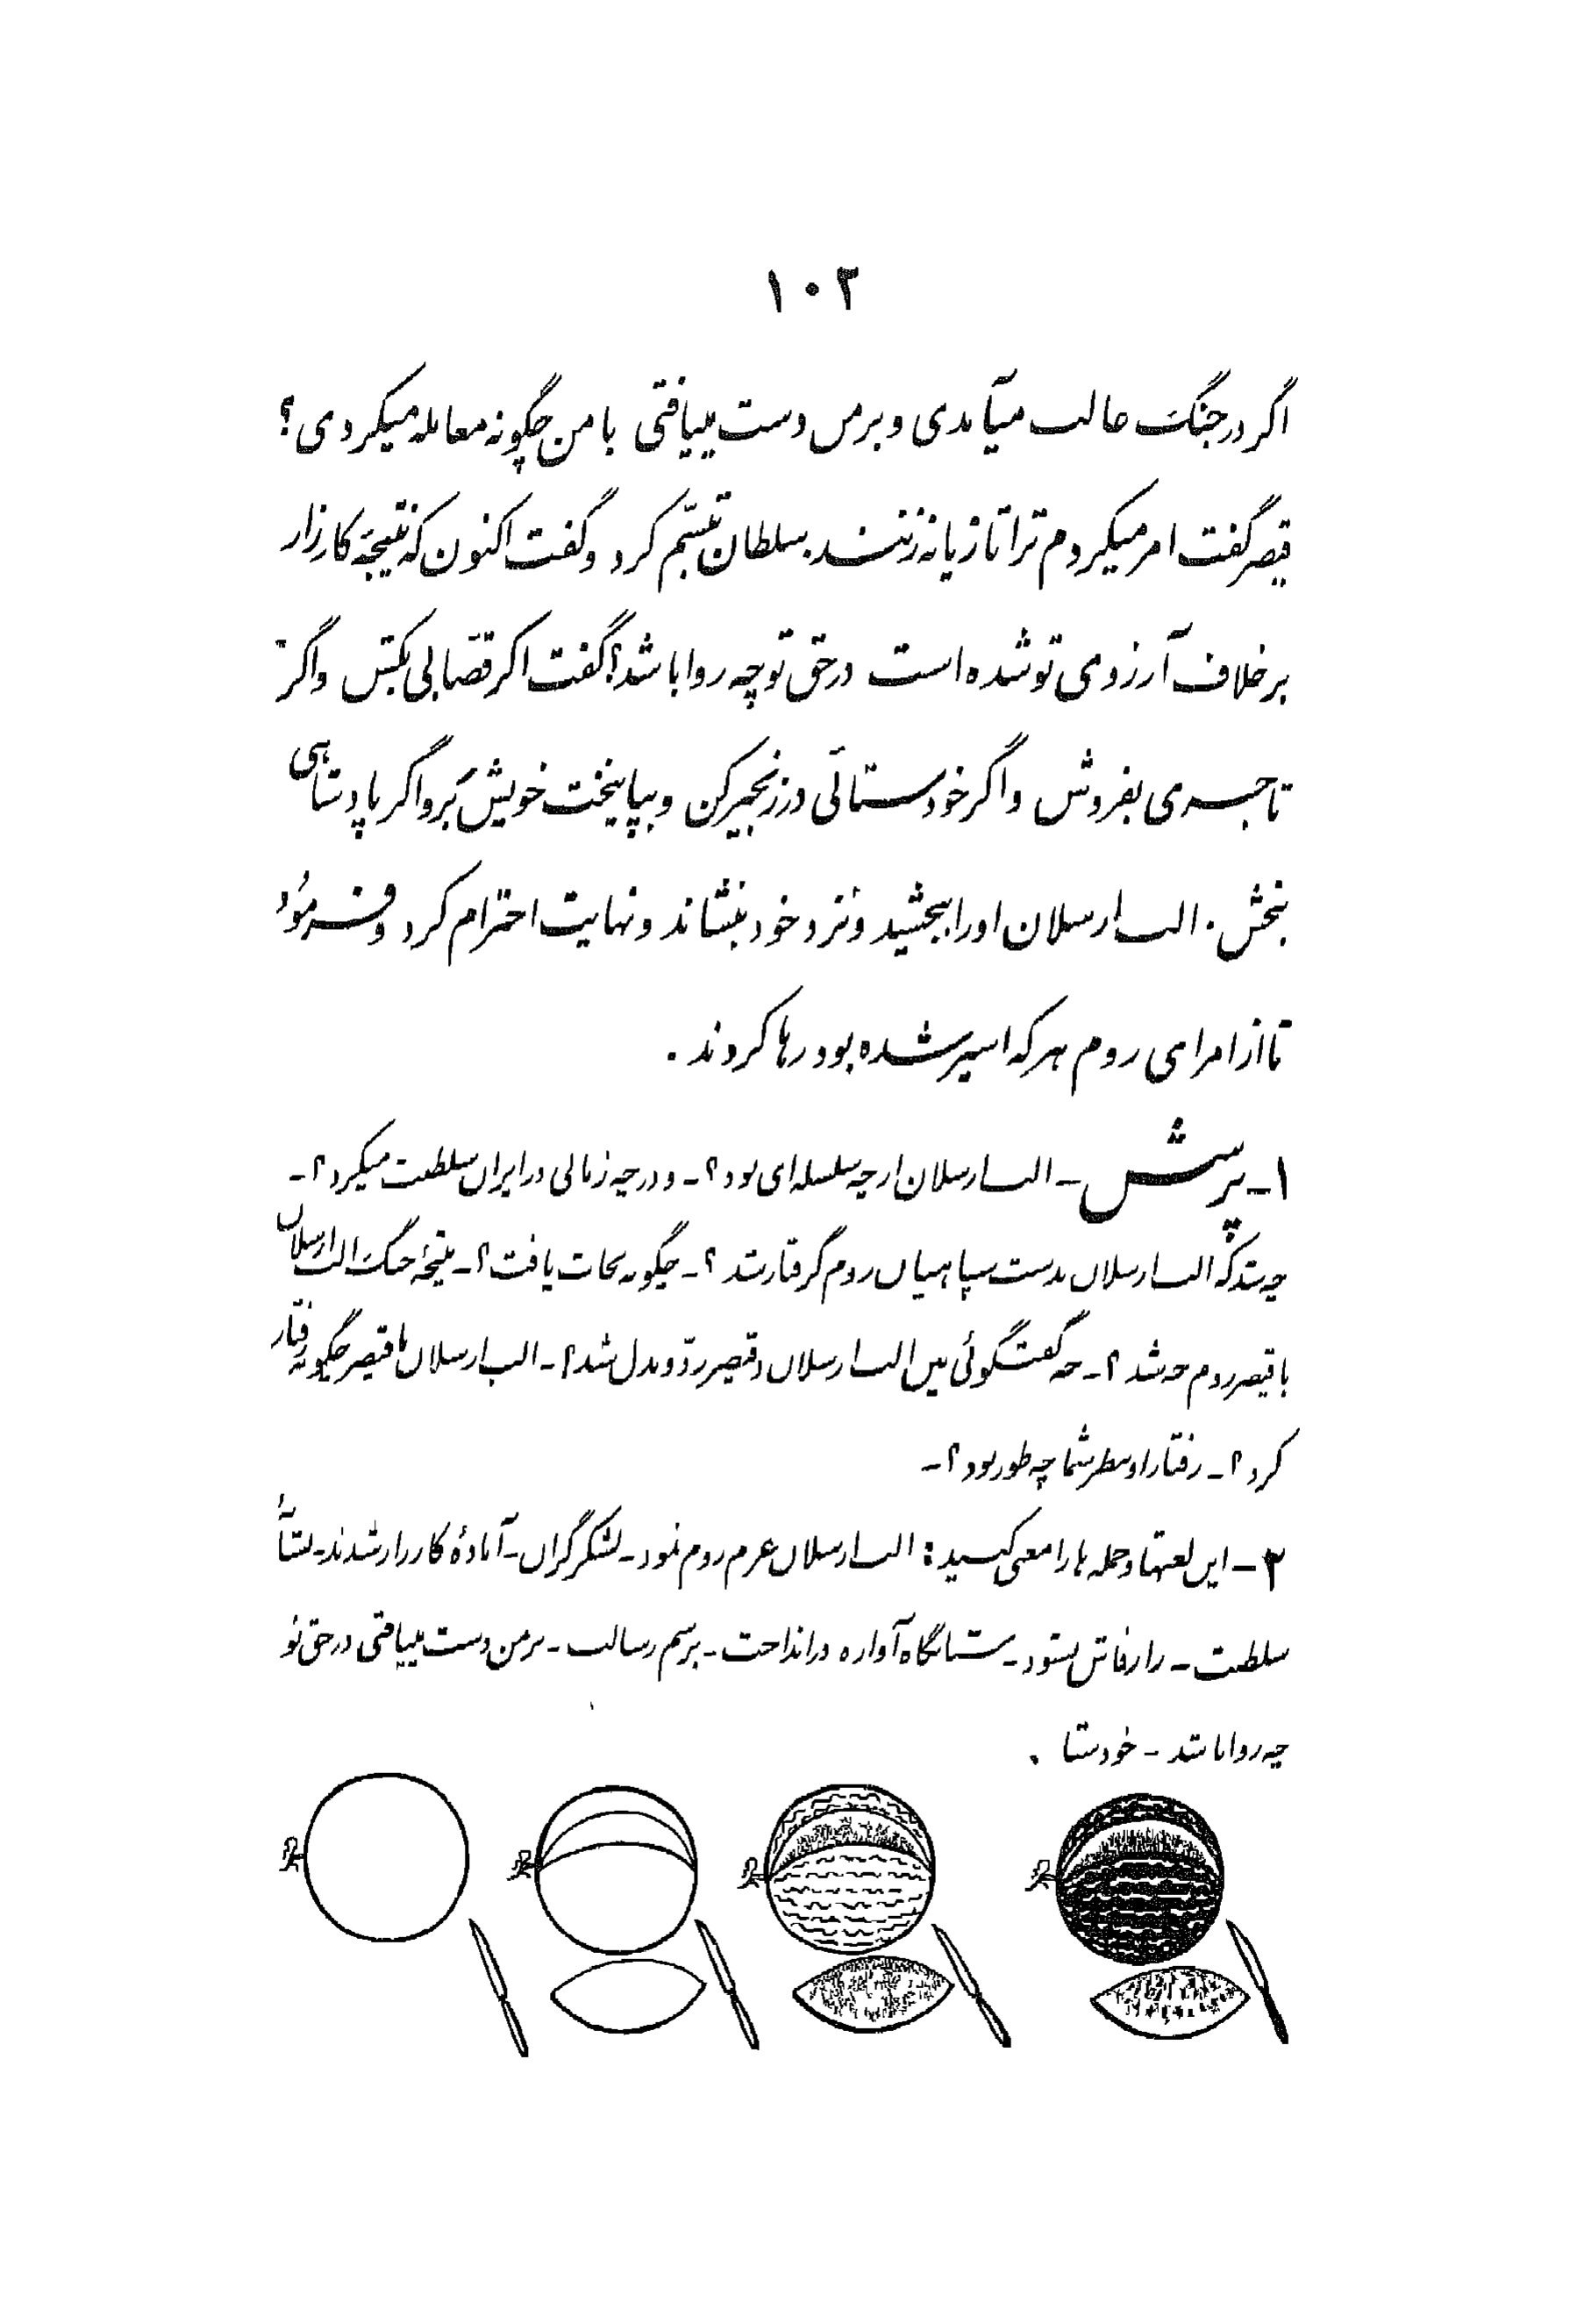 ۱۰۲
اگر در جنگ غالب میآمدی و بر من دست مییافتی با من چگونه معامله میکردی؟
قیصر گفت امر میکردم ترا تازیانه زنند. سلطان تبسّم کرد و گفت اکنون که نتیجهٔ کارزار
بر خلاف آرزوی تو شده است در حق تو چه روا باشد؟ گفت اگر قصّابی بکش و اگر
تاجری بفروش و اگر خودستائی در زنجیر کن و بپایتخت خویش بَر و اگر پادشاهی
ببخش. الب ارسلان او را ببخشید و نزد خود بنشاند و نهایت احترام کرد و فرمُود
تا از امرای روم هر که اسیر شده بود رها کردند.
۱ـ پرسش ـ الب ارسلان از چه سلسله‌ای بود؟ ـ و در چه زمانی در ایران سلطنت میکرد؟ ـ
چه شد که الب ارسلان بدست سپاهیان روم گرفتار شد؟ ـ چگونه نجات یافت؟ ـ نتیجهٔ جنگ الب ارسلان
با قیصر روم چه شد؟ ـ چه گفتگوئی بین الب ارسلان و قیصر ردّ و بدل شد؟ ـ الب ارسلان با قیصر چگونه رفتار
کرد؟ ـ رفتار او بنظر شما چه طور بود؟ ـ
۲ ـ این لغتها و جمله ها را معنی کنید: الب ارسلان عزم روم نمود ـ لشکر گران ـ آمادهٔ کارزار شدند ـ
سلطنت ـ راز فاش نشود ـ شبانگاه آوازه در انداخت ـ برسم رسالت ـ بر من دست مییافتی در حق تو
چه روا باشد ـ خودستا.